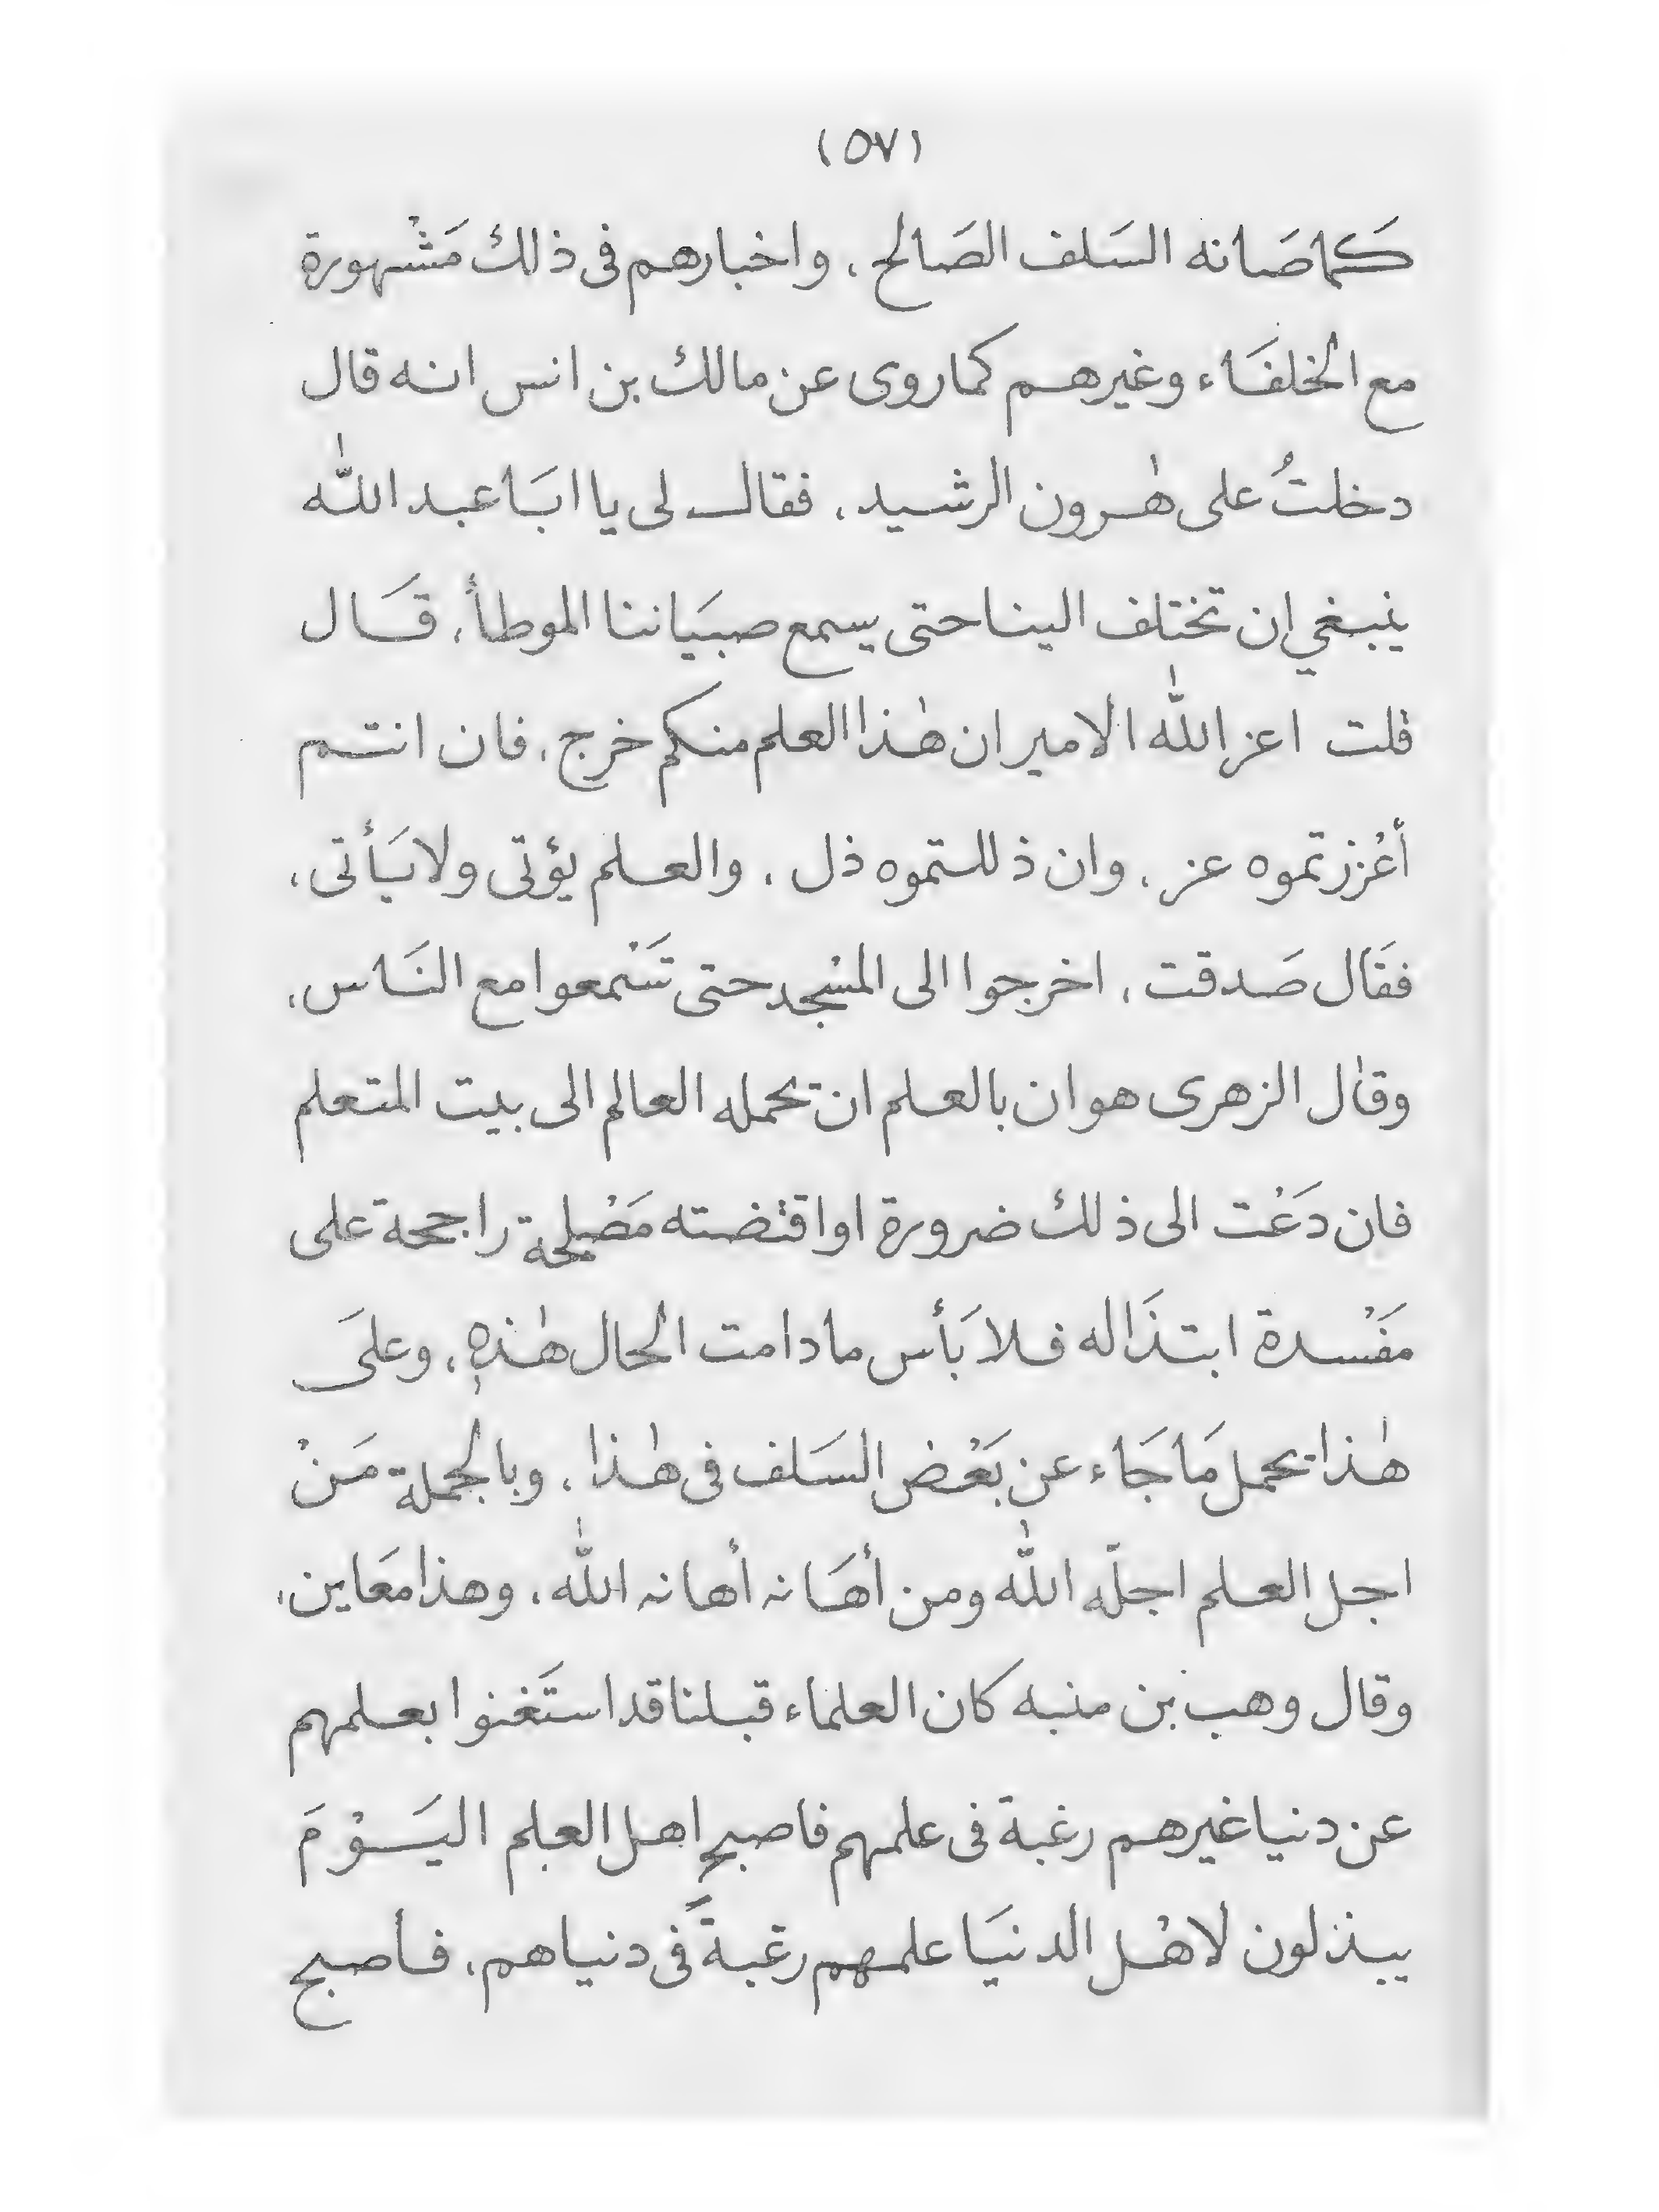 (٥٧)
كَما صَانه السَلف الصَالح ، واخبارهم فى ذلك مَشْهورة
مع الخلفَاء وغيرهم كما روى عن مالك بن انس انه قال
دخلتُ على هٰرون الرشيد ، فقال لى يا ابَا عبد اللّٰه
ينبغي ان تختلف الينا حتى يسمع صبيَاننا الموطأ ، قَال
قلت اعز اللّٰه الامير ان هٰذا العلم منكم خرج ، فان انتم
أعْززتموه عز ، وان ذللتموه ذل ، والعلم يؤتى ولا يَأتى ،
فقَال صَدقت ، اخرجوا الى المسْجد حتى تَسْمعوا مع النَاس ،
وقال الزهرى هوان بالعلم ان يحمله العالم الى بيت المتعلم
فان دَعْت الى ذلك ضرورة او اقتضته مَصْلحة راجحة على
مَفْسدة ابتذَاله فلا بَأس ما دامت الحال هٰذهٖ ، وعلىَ
هٰذا يحمل مَا جَاء عن بَعْض السَلف فى هٰذا ، وبالجملة مَنْ
اجل العلم اجلّه اللّٰه ومن أهَانه أهانه اللّٰه ، وهذا معَاين ،
وقال وهب بن منبه كان العلماء قبلنا قد استَغنوا بعلمهم
عن دنيا غيرهم رغبة فى علمهم فاصبح اهل العلم اليَوْمَ
يبذلون لاهْل الدنيَا علمهم رغبةً فى دنياهم ، فأصبح